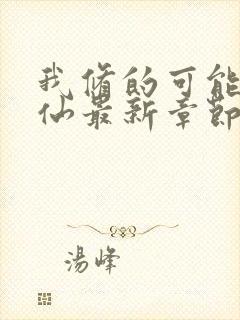 我脩的可能
仙最新章節
湯峰